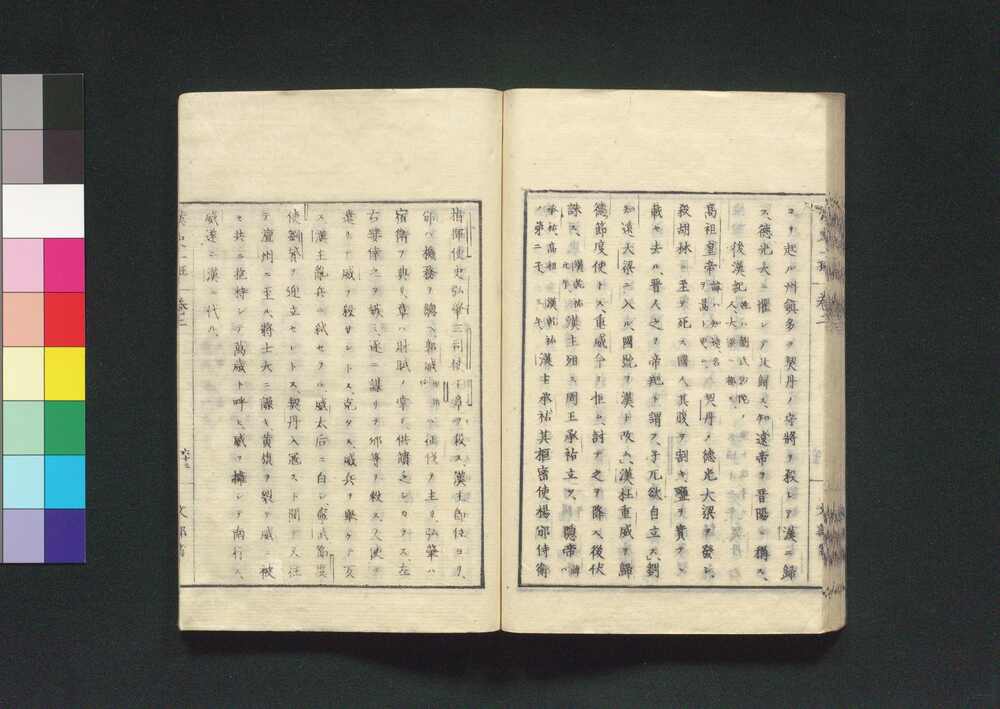 コリ起ル州鎮多ク契丹ノ守將ヲ殺シテ漢ニ歸
ス、德光大ニ懼レテ北歸ス、知遠帝ヲ晉陽ニ稱ス、
後漢紀
高祖皇帝 契丹ノ德光大梁ヲ發シ、
殺胡林ニ至テ死ス國人其腹ヲ割キ鹽ヲ實テ
載セ去ル、晉人之ヲ帝羓ト謂フ、子兀欲自立ス、劉
知遠大梁ニ入ル、國號ヲ漢ト改ム、漢杜重威ヲ歸
德節度使トス、重威命ヲ拒ム、討テ之ヲ降ス後伏
誅ス、漢主殂ス周王承祐立ツ、隱帝
承祐高祖ノ第二子 漢主承祐其樞密使楊邠侍衛
指揮使史弘肇三司使王章ヲ殺ス、漢主即位ヨリ、
邠ハ機務ヲ總ヘ郭威ハ征伐ヲ主リ弘肇ハ
宿衛ヲ典リ章ハ財賦ヲ掌リ供饋乏シカラス、左
右嬖倖之ヲ嫉ミ遂ニ謀リテ邠等ヲ殺ス、又使ヲ
遣リテ威ヲ殺サントス、克タス、威兵ヲ擧ケテ反
ス漢主亂兵ニ弑セラル威太后ニ白シ
使劉贇ヲ迎立セントス契丹入冦スト聞テ又往
テ澶州ニ至ル、將士大ニ譟キ黃旗ヲ裂テ威ニ被
セ共ニ扶持シテ萬歲ト呼ヒ威ヲ擁シテ南行ス、
威遂ニ漢ニ代ル、
卷二
六十二
文部省